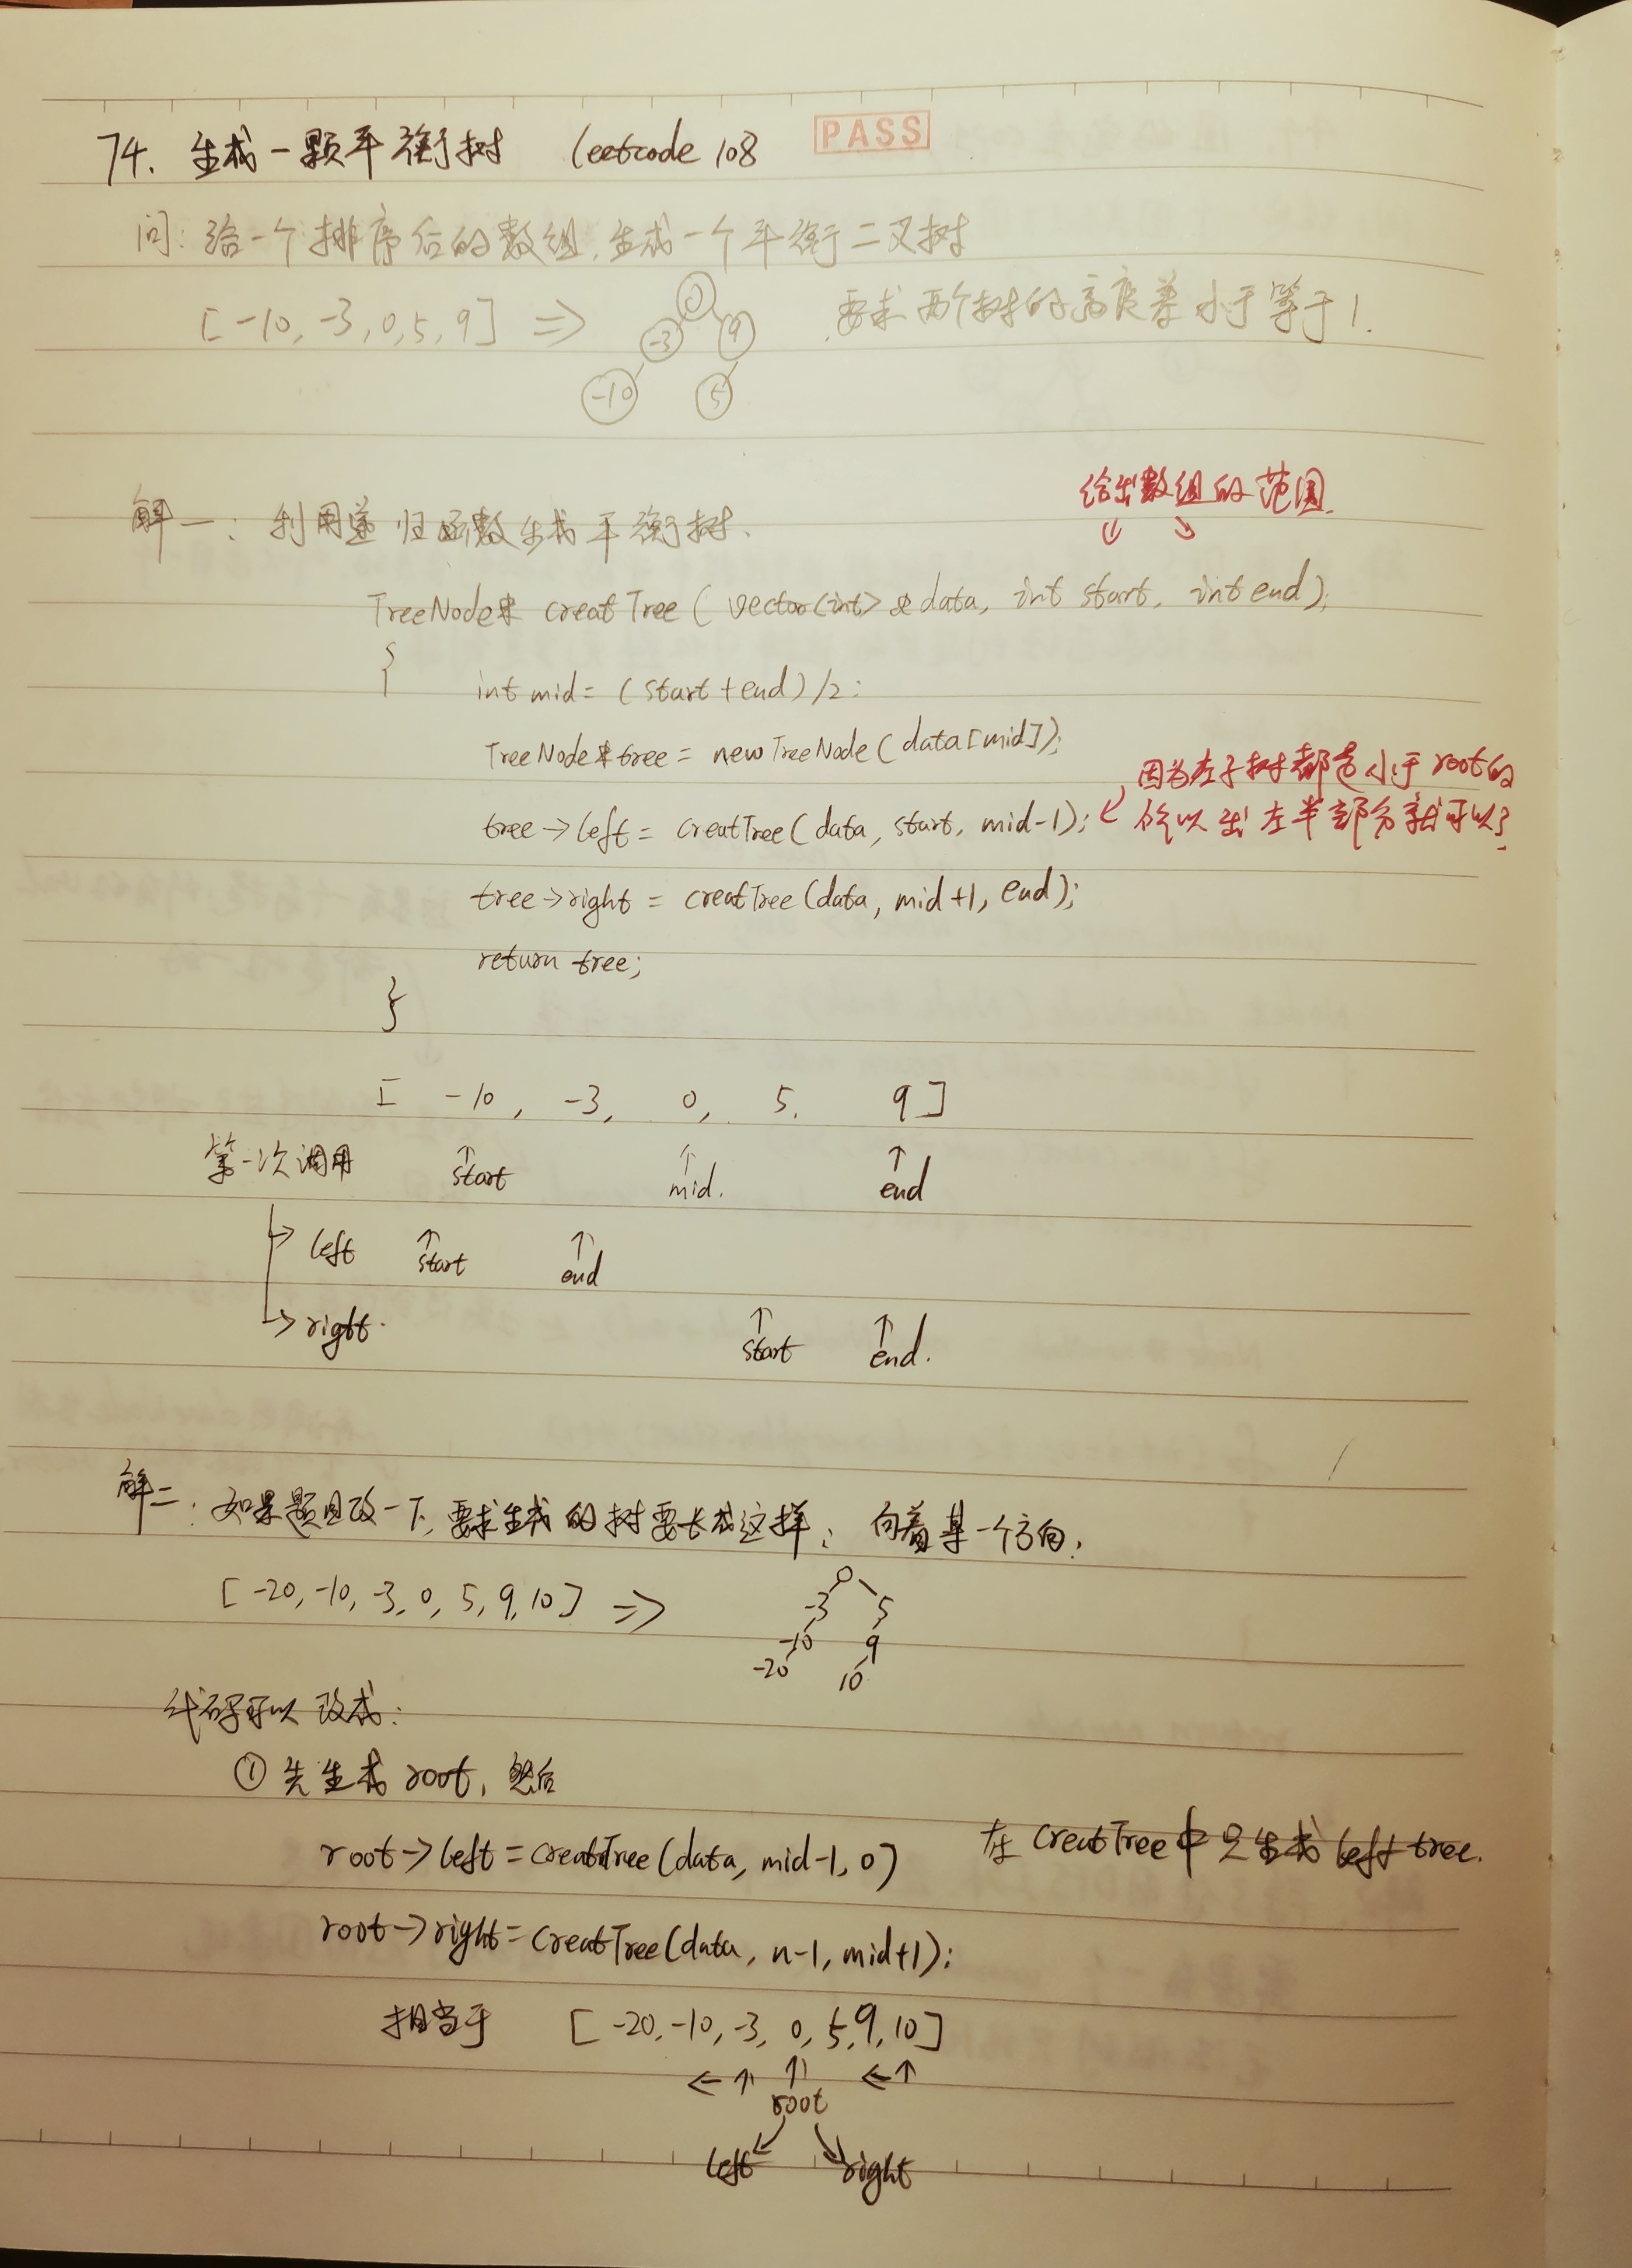 74. 生成一颗平衡树 leetcode 108
PASS
问: 给一个排序后的数组, 生成一个平衡二叉树
[-10, -3, 0, 5, 9] ⇒
0
-3 9
-10 5
要求两个树的高度差小于等于1.
给出数组的范围.
解一: 利用递归函数生成平衡树.
TreeNode* creatTree (vector<int> &data, int start, int end);
{
int mid = (start + end)/2;
TreeNode* tree = new TreeNode(data[mid]);
因为左子树都是小于root的
tree->left = creatTree(data, start, mid-1);
所以出左半部分就可以了
tree->right = creatTree(data, mid+1, end);
return tree;
}
[ -10, -3, 0, 5, 9 ]
第一次调用 ↑start ↑mid. ↑end
left ↑start ↑end
right. ↑start ↑end.
解二: 如果题目改一下, 要求生成的树要长成这样, 向着某一个方向.
[-20, -10, -3, 0, 5, 9, 10] ⇒
0
-3 5
-10 9
-20 10
代码可以改成:
① 先生成root, 然后
root->left = creatTree(data, mid-1, 0) 在creatTree中只生成left tree.
root->right = creatTree(data, n-1, mid+1);
相当于 [-20, -10, -3, 0, 5, 9, 10]
← ↑ ↑ ← ↑
root
left right